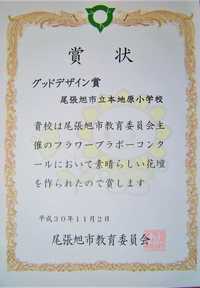 賞状
グッドデザイン賞
尾張旭市立本地原小学校
貴校は尾張旭市教育委員会主
催のフラワーブラボーコンク
ールにおいて素晴らしい花壇
を作られたので賞します
平成30年11月2日
尾張旭市教育委員会